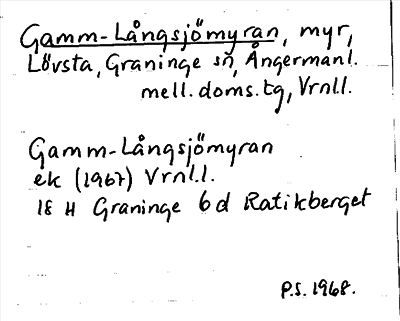 Gamm-Långsjömyran, myr,
Lövsta, Graninge sn, Ångermanl.
mell. doms. tg, Vrnll.
Gamm-Långsjömyran
ek (1967) Vrnl.l.
18 H Graninge 6d Ratikberget
P.S. 1968.